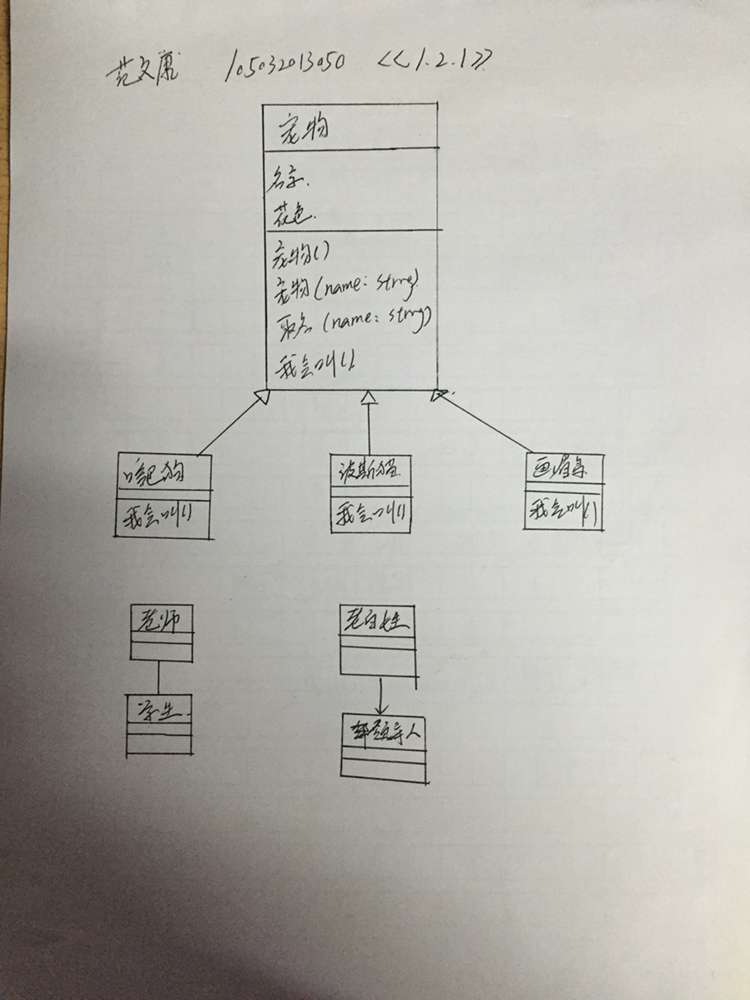 范文康 105032013050 <<1.2.1>>
宠物
名字.
花色.
宠物()
宠物(name: string)
取名(name: string)
我会叫()
哈巴狗
我会叫()
波斯猫
我会叫()
画眉鸟
我会叫()
老师
学生
老百姓
领导人